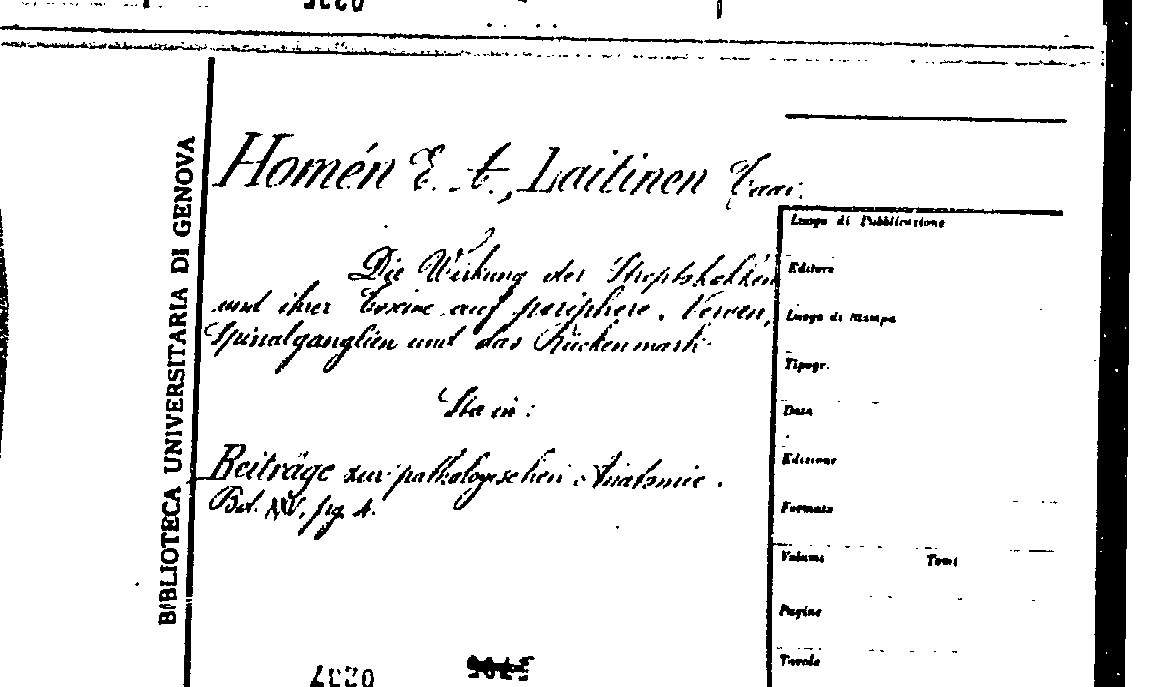 BIBLIOTECA UNIVERSITARIA DI GENOVA
Homén E. A., Laitinen Taav.
Die Wirkung der Streptokokken
und ihrer Toxine auf periphere. Nerven,
Spinalganglien und das Rückenmark
Sta in:
Beiträge zur pathologischen Anatomie.
Bd. XXV, pg. 4.
Luogo di Pubblicazione
Editore
Luogo di stampa
Tipogr.
Data
Edizione
Formato
Volumi Tomi
Pagine
Tavole